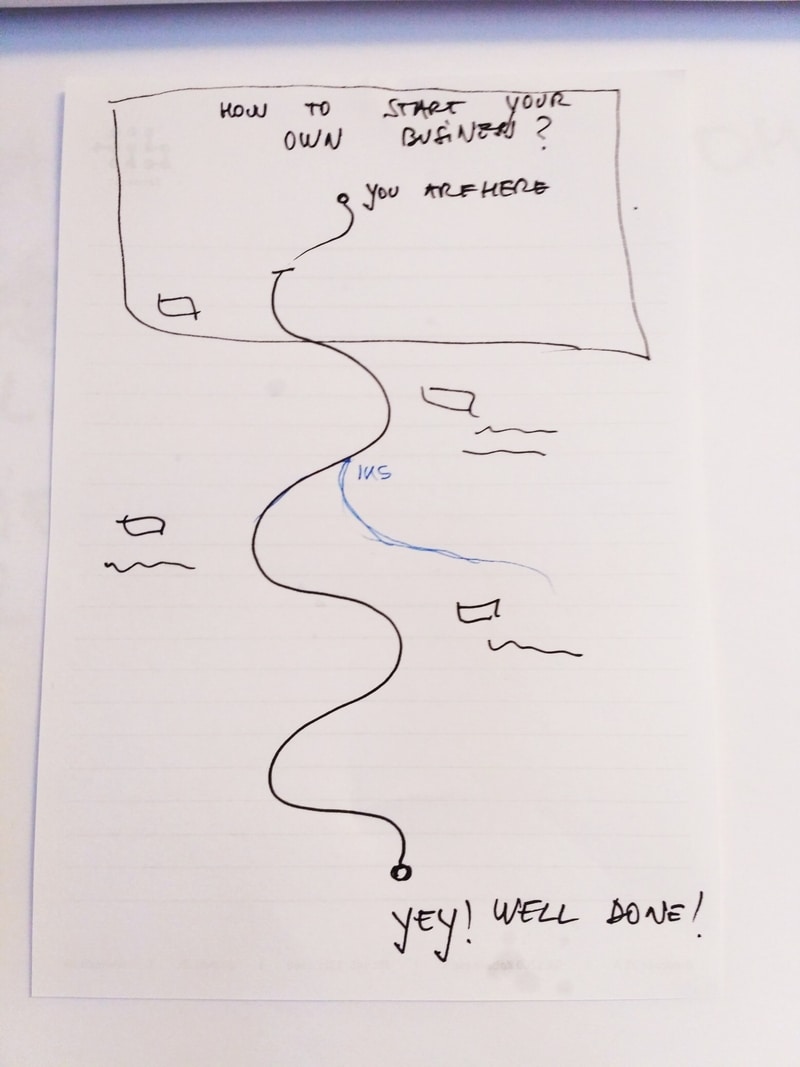 HOW TO START YOUR
OWN BUSINESS?
YOU ARE HERE
YEY! WELL DONE!